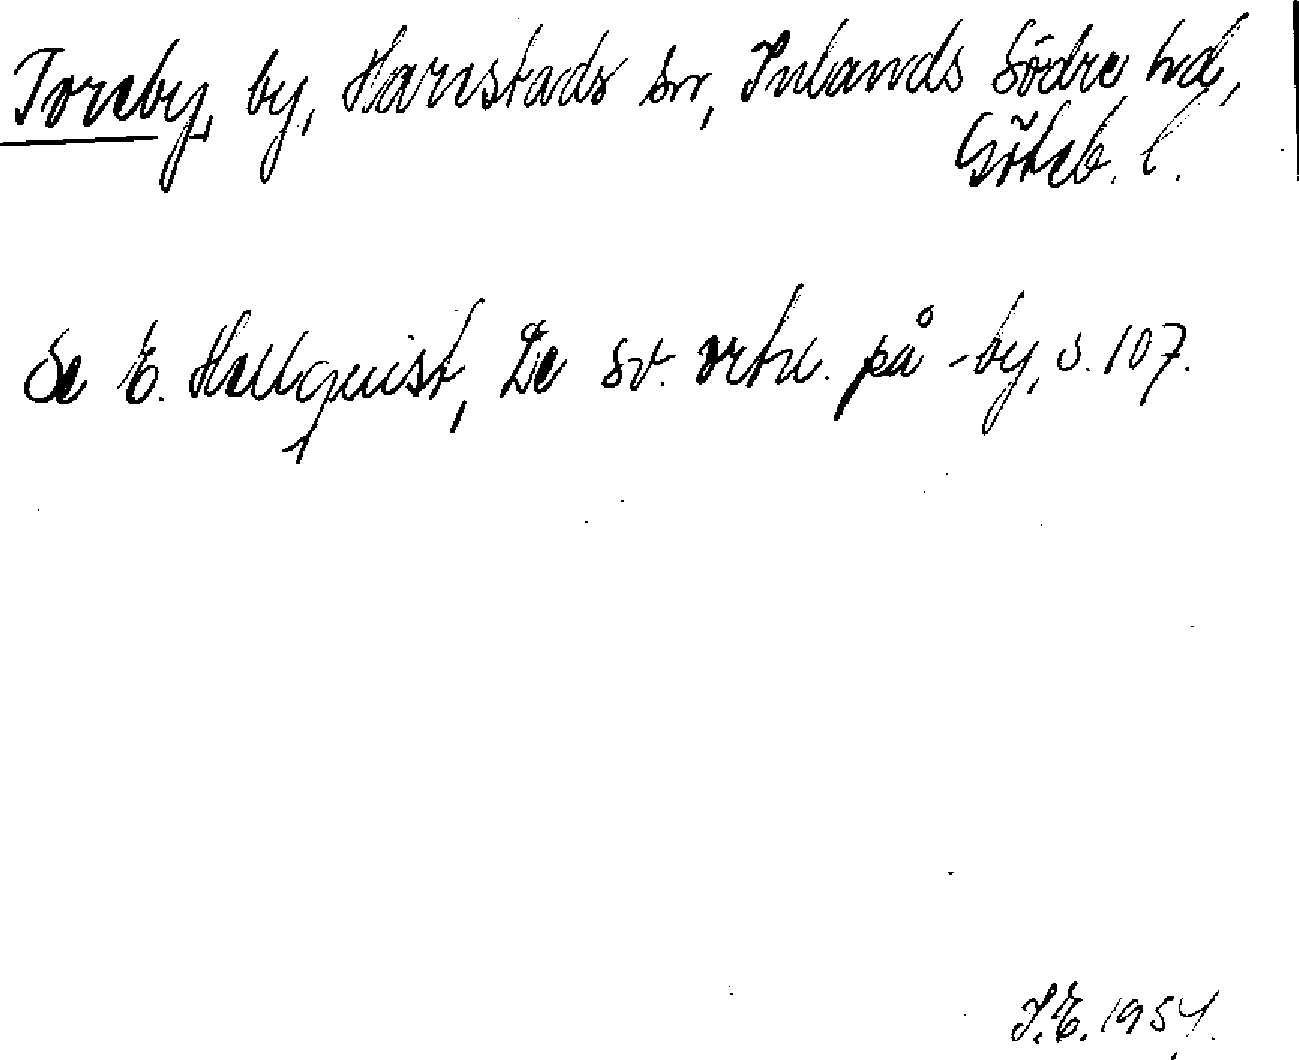 Toreby, by, Harestads sn, Inlands Södre hd,
Göteb. l.
Se E. Hellquist, De sv. ortn. på -by, s. 107.
I.E. 1954.